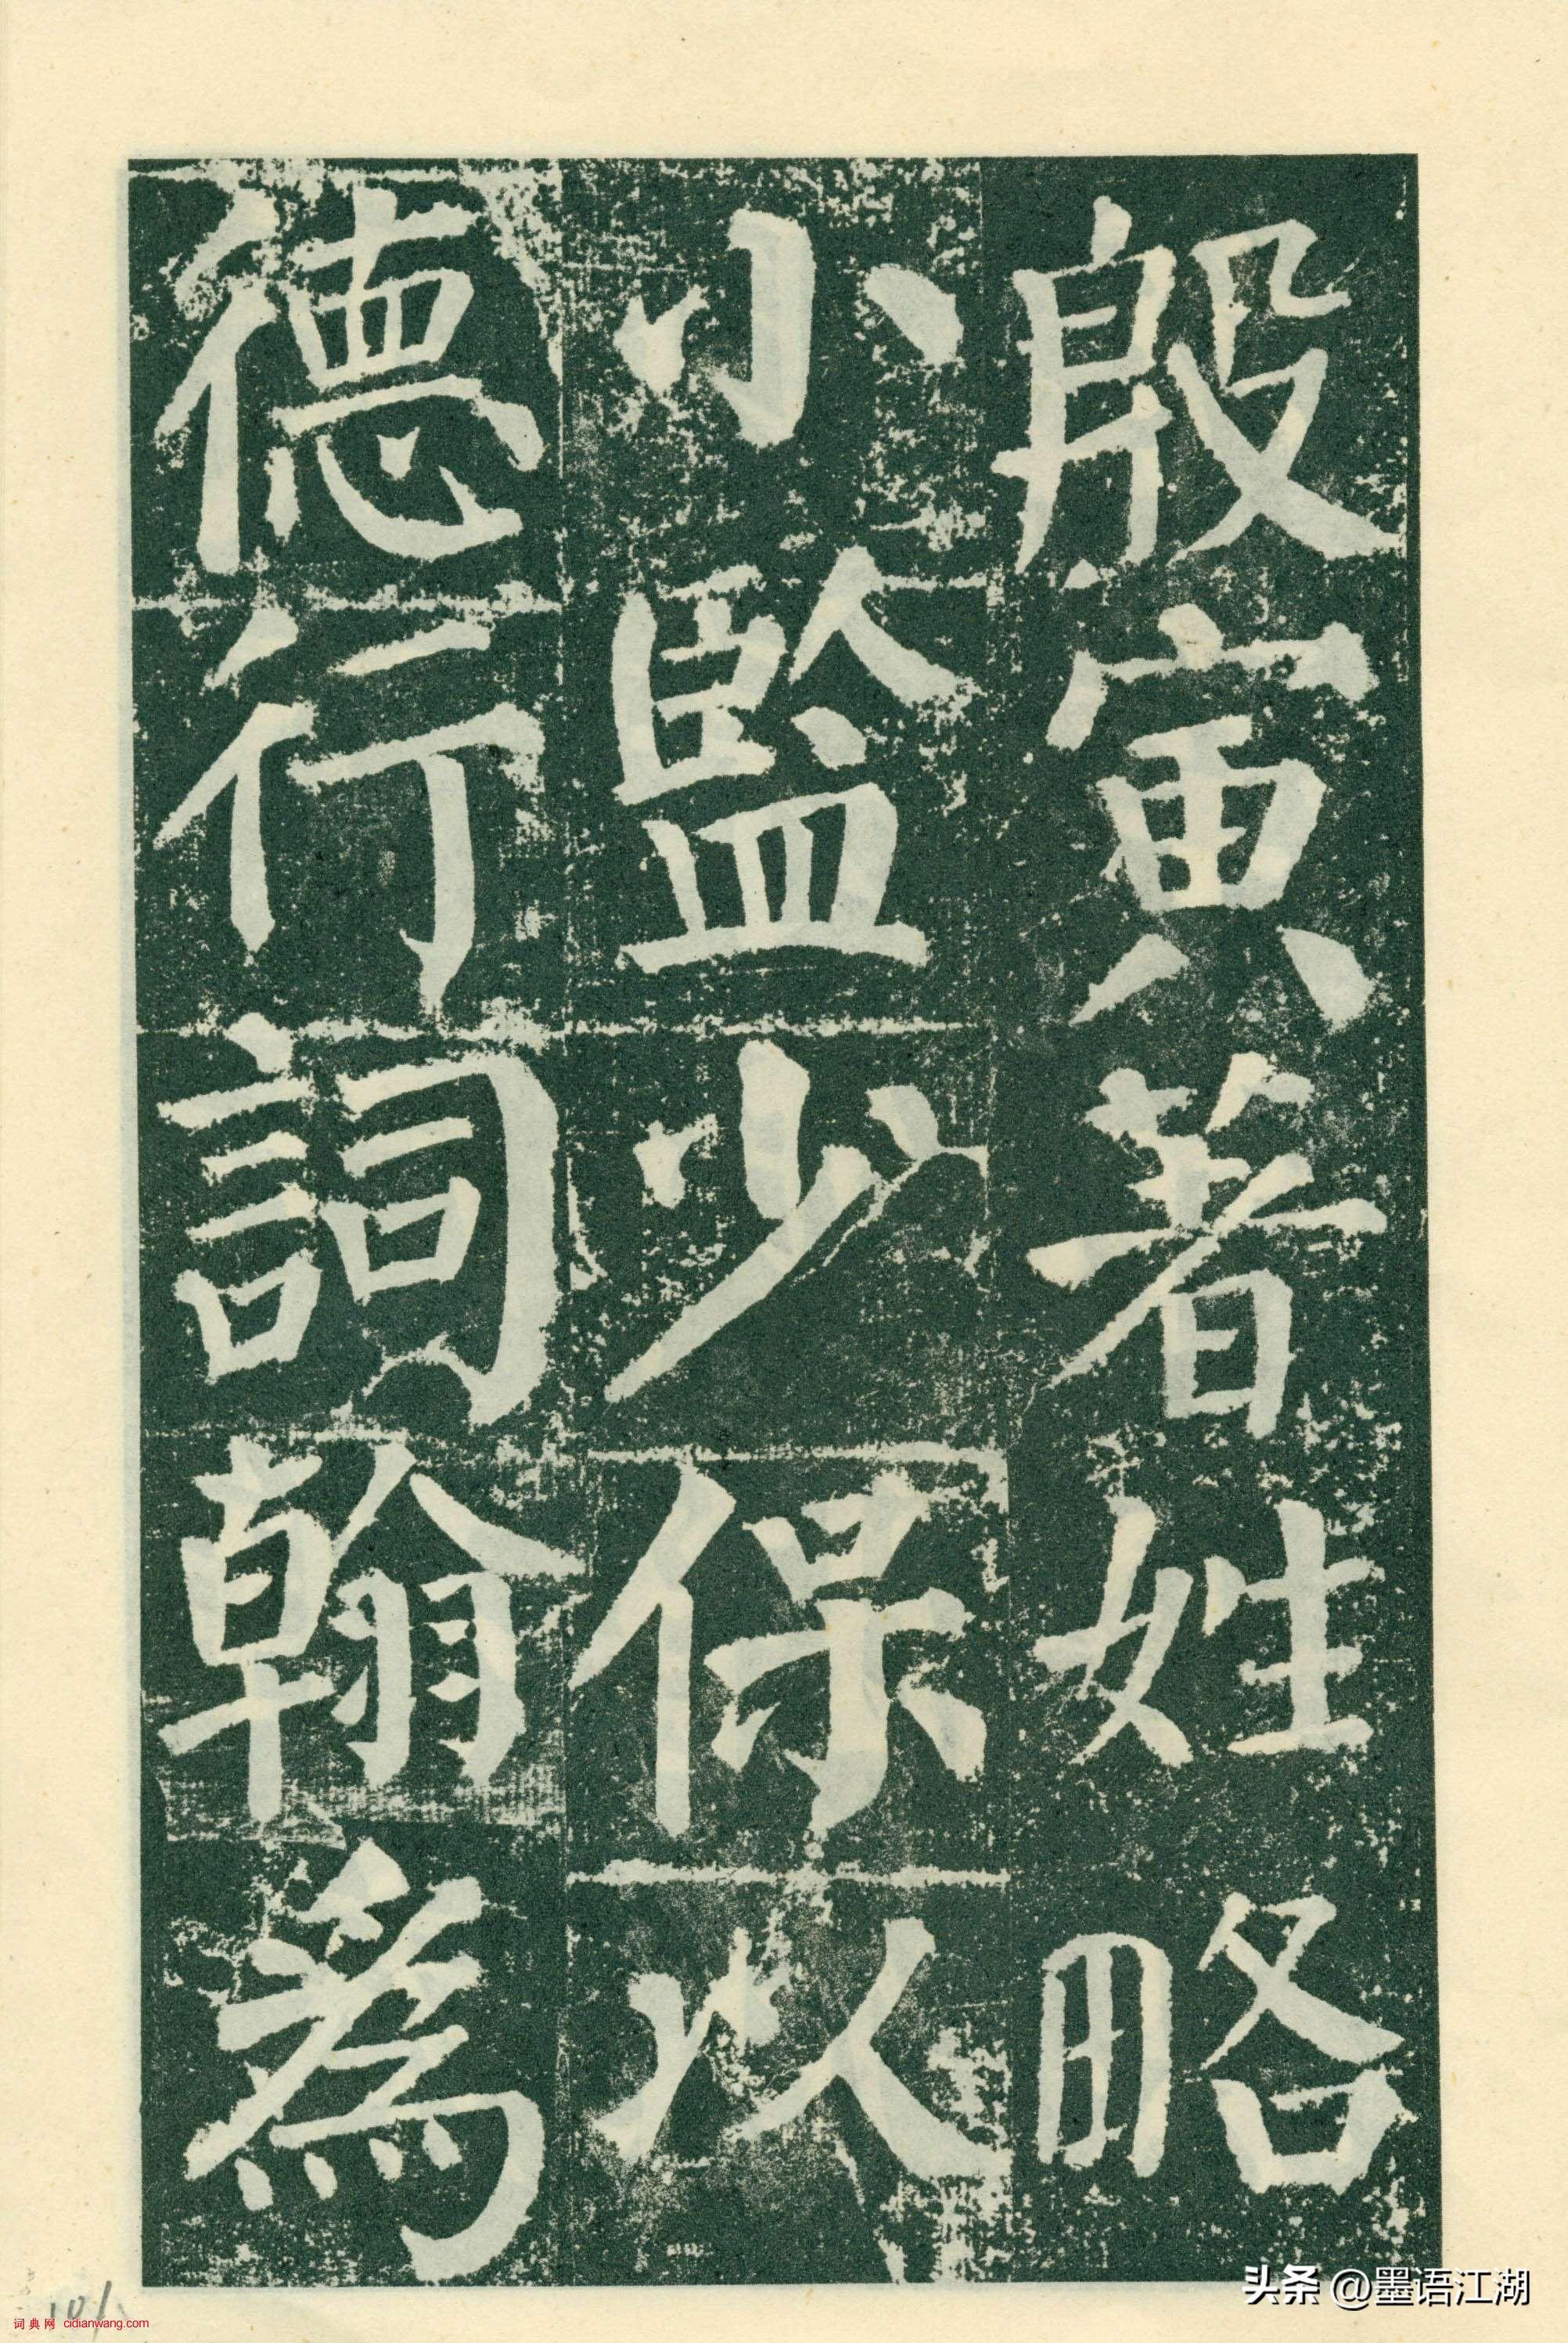 殷寅著姓略
小監少保以
德行詞翰為
头条 @墨语江湖
101
词典网 cidianwang.com